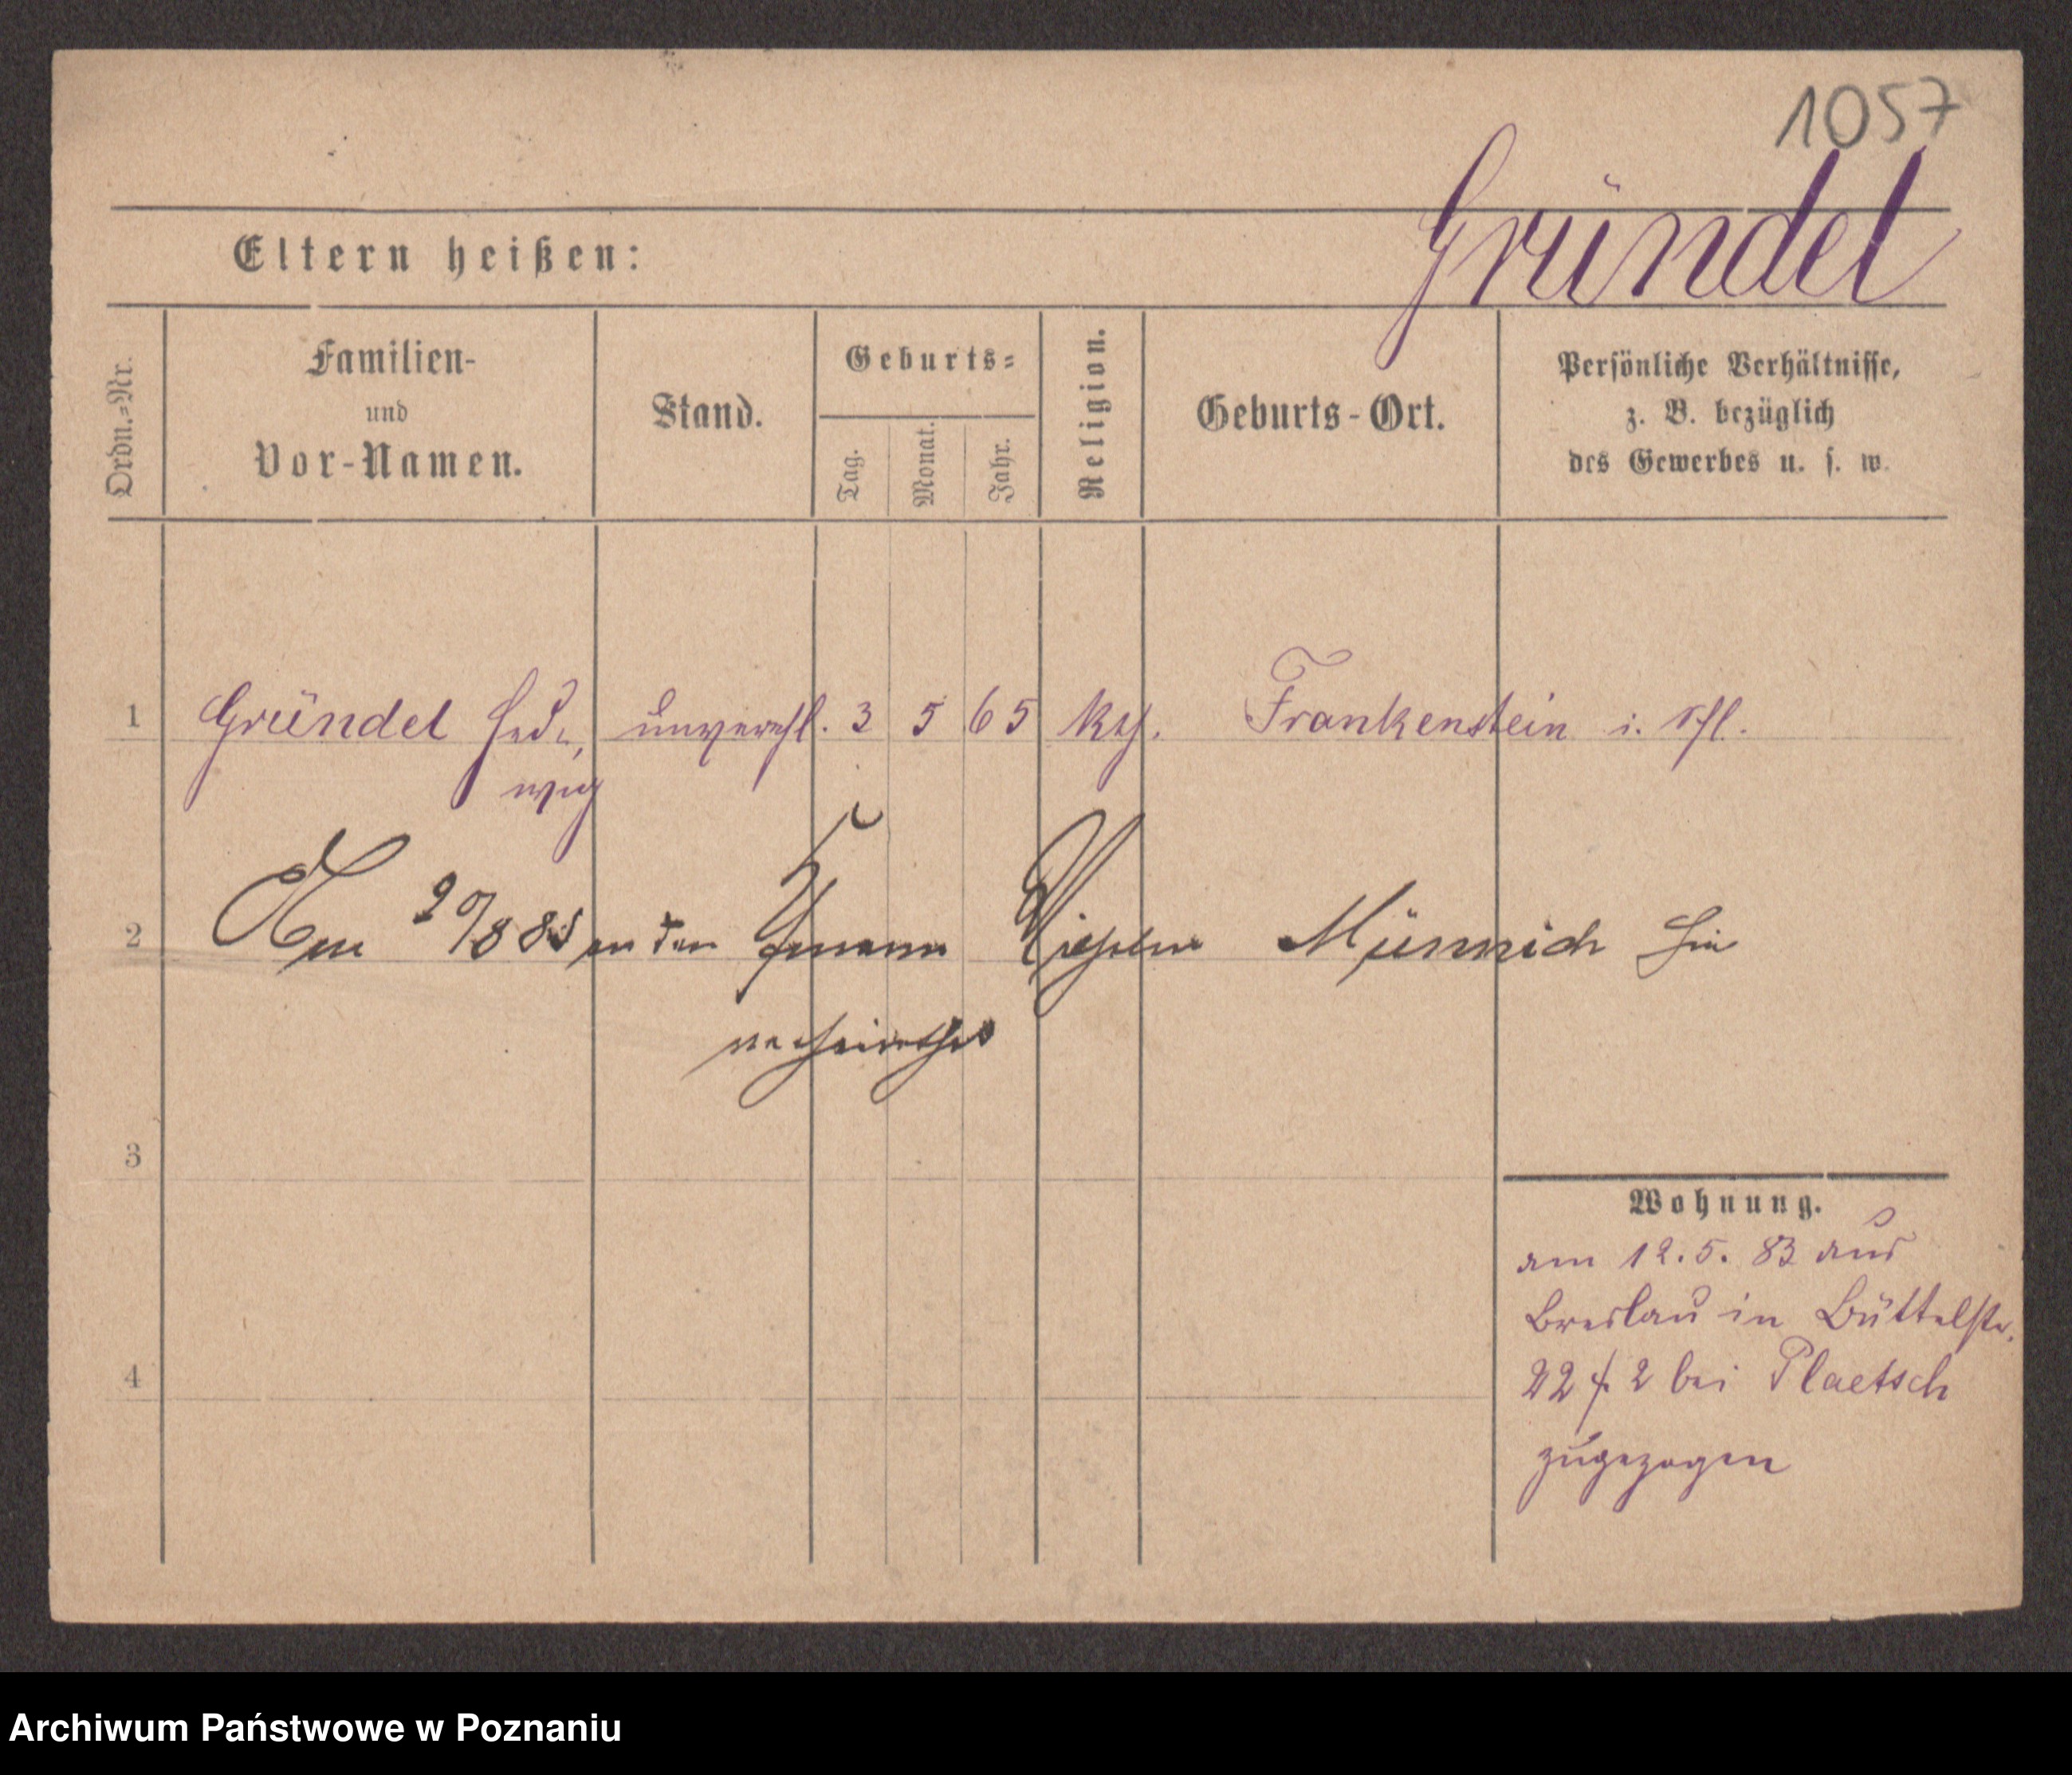 1057
Gründel
Eltern heißen:
Ordn.=Nr.
Familien-
und
Vor-Namen.
Stand.
Geburts=
Tag.
Monat.
Jahr.
Religion.
Geburts-Ort.
Persönliche Verhältnisse,
z. B. bezüglich
des Gewerbes u. s. w.
1 Gründel Hed-, unverehl. 3 5 65 kth. Frankenstein i. Schl.
wig
2 Am 29/8 85 an den Münnich hier
verheirathet
3
Wohnung.
am 12.5.83 aus
Breslau in Büttelstr.
4
22 f. 2 bei Plaetsch
zugezogen
Archiwum Państwowe w Poznaniu